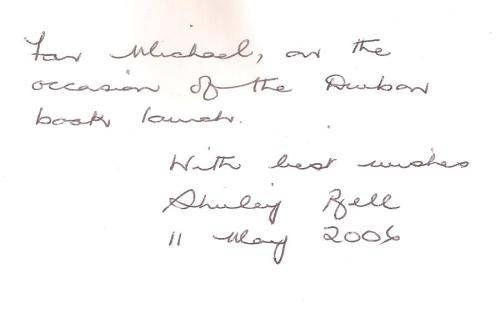 For Michael, on the
occasion of the Durban
book launch.
With best wishes
Shirley Bell
11 May 2006